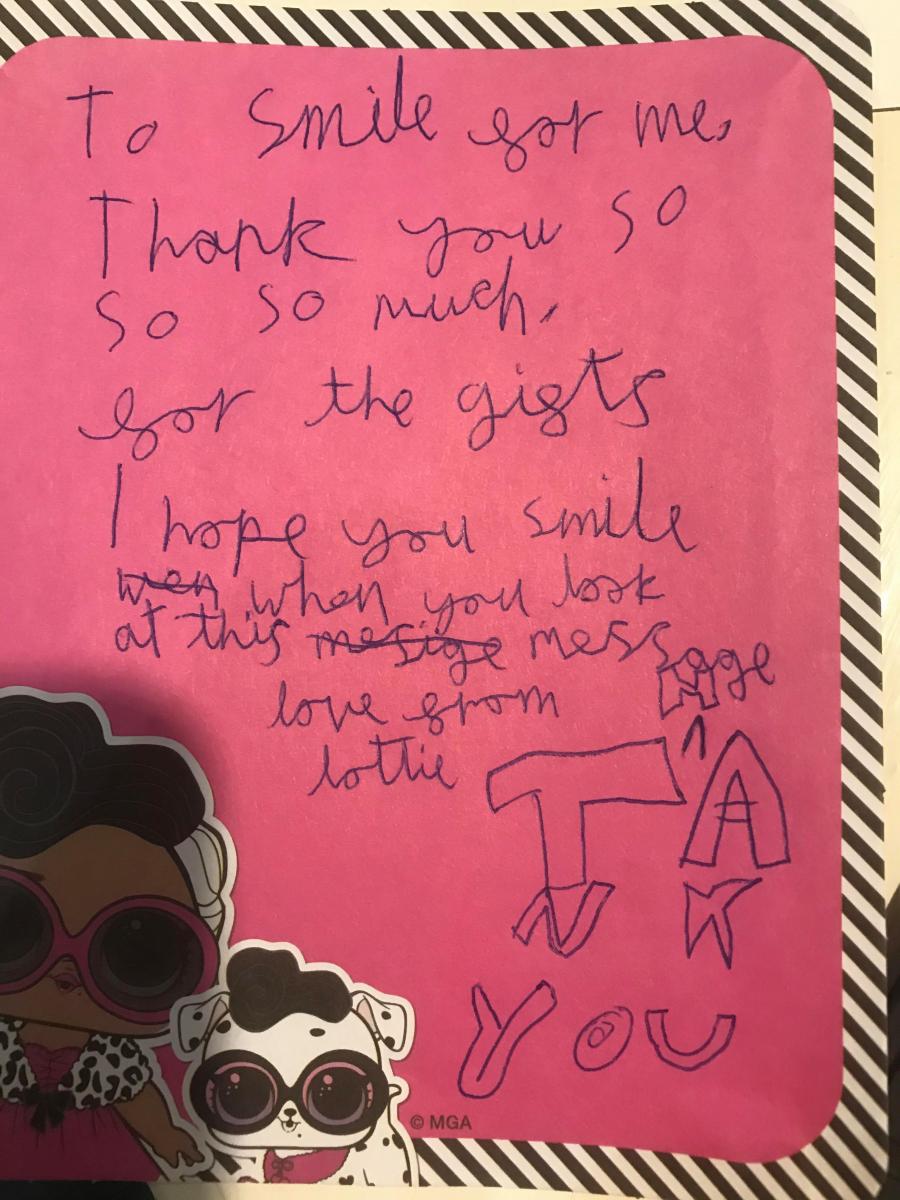 To Smile for me,
Thank you so
so so much,
for the gifts
I hope you smile
wen when you look
at this mesige message
love from
lottie
THANK
YOU
© MGA